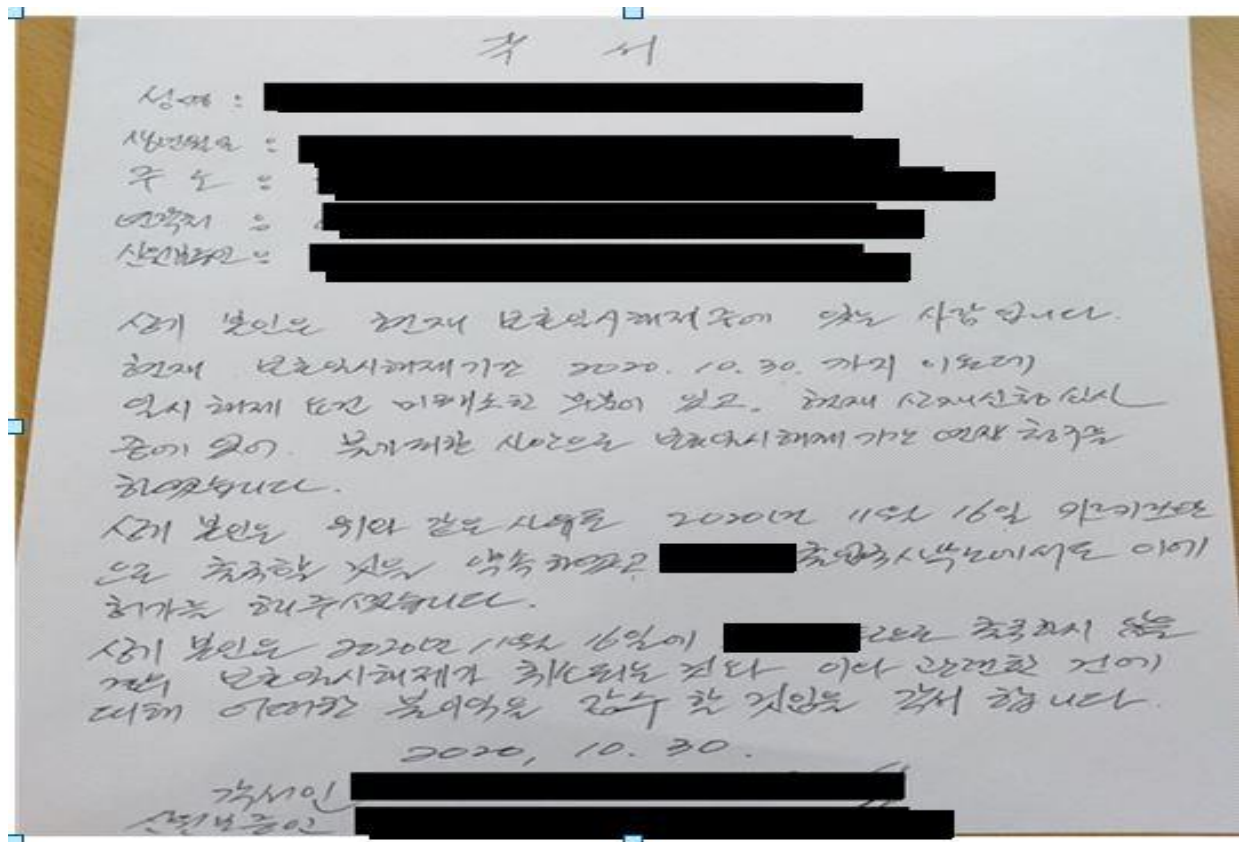 각 서
성명 :
생년월일 :
주 소 :
연락처 :
신원보증인 :
상기 본인은 현재 보호일시해제 중에 있는 사람입니다.
현재 보호일시해제기간 2020. 10. 30. 까지 이온데
일시해제 조건 미해소한 부분이 있고. 현재 산재신청 심사
중에 있어. 불가피한 사안으로 보호일시해제 기간 연장 청구를
하였습니다.
상기 본인은 위와 같은 사유로 2020년 11월 16일
으로 출국할 것을 약속하였고 에서도 이에
허가를 해주셨습니다.
상기 본인은 2020년 11월 16일에 출국하지 않을
경우 보호일시해제가 취소되는 것과 이와 관련한 건에
대해 어떠한 불이익을 감수 할 것임을 각서 합니다.
2020, 10. 30.
각서인
신원보증인